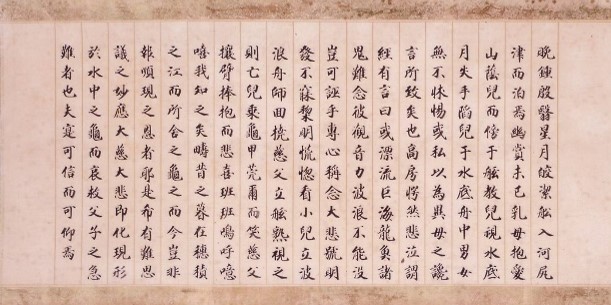 晩鍾殷翳星月皎潔舩入河尻
津而泊焉幽賞未已乳母抱愛
山蔭兒而傍于舷教兒視水底
月失手陷兒于水底舟中男女
無不怵惕或私以為異母之讒
言所致矣也高房愕然悲泣謂
經有言曰或漂流巨海龍魚諸
鬼難念彼觀音力波浪不能没
豈可誣乎専心稱念大悲號明
發不寐黎明慌惚看小兒立波
浪舟師回橈慈父立舷熟視之
則亡兒乗龜甲莞爾而笑慈父
攘臂捧抱而悲喜班班嗚呼噫
嘻我知之矣疇昔之暮在穗積
之江而所舎之龜之而今豈非
報順現之恩者耶是希有難思
議之妙應大慈大悲即化現形
於水中之龜而哀救父子之急
難者也夫寔可信而可仰焉